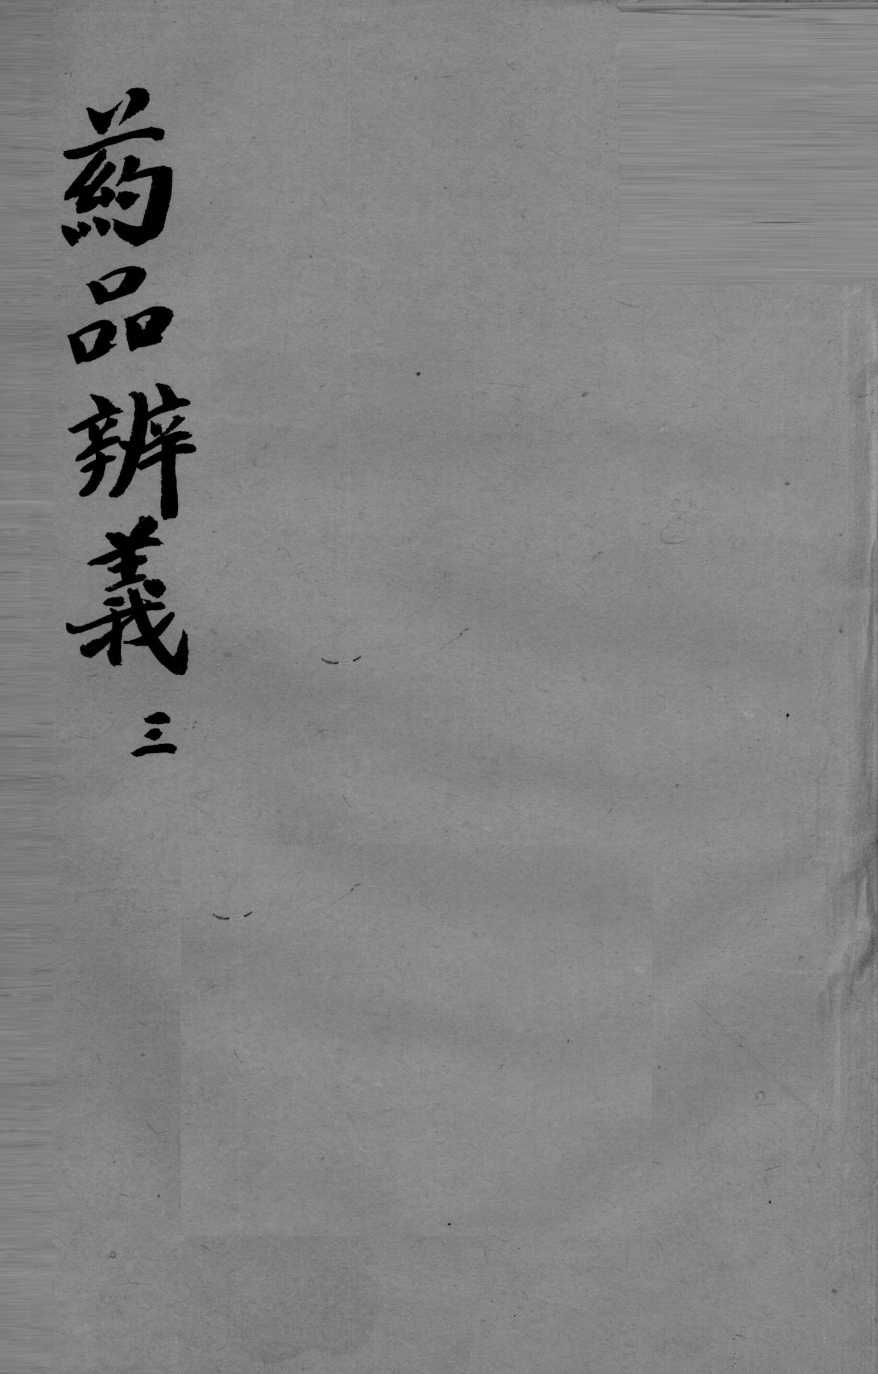 葯品辨義
三